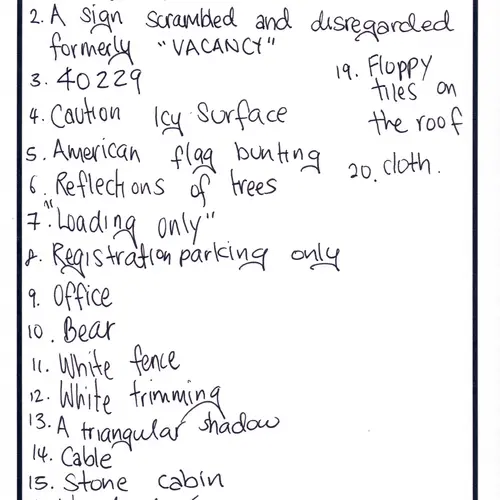 2. A sign scrambled and disregarded
formerly "VACANCY"
3. 40229
4. Caution Icy Surface
5. American flag bunting
6. Reflections of trees
7. "Loading only"
8. Registration parking only
9. Office
10. Bear
11. White fence
12. White trimming
13. A triangular shadow
14. Cable
15. Stone cabin
19. Floppy
tiles on
the roof
20. cloth.